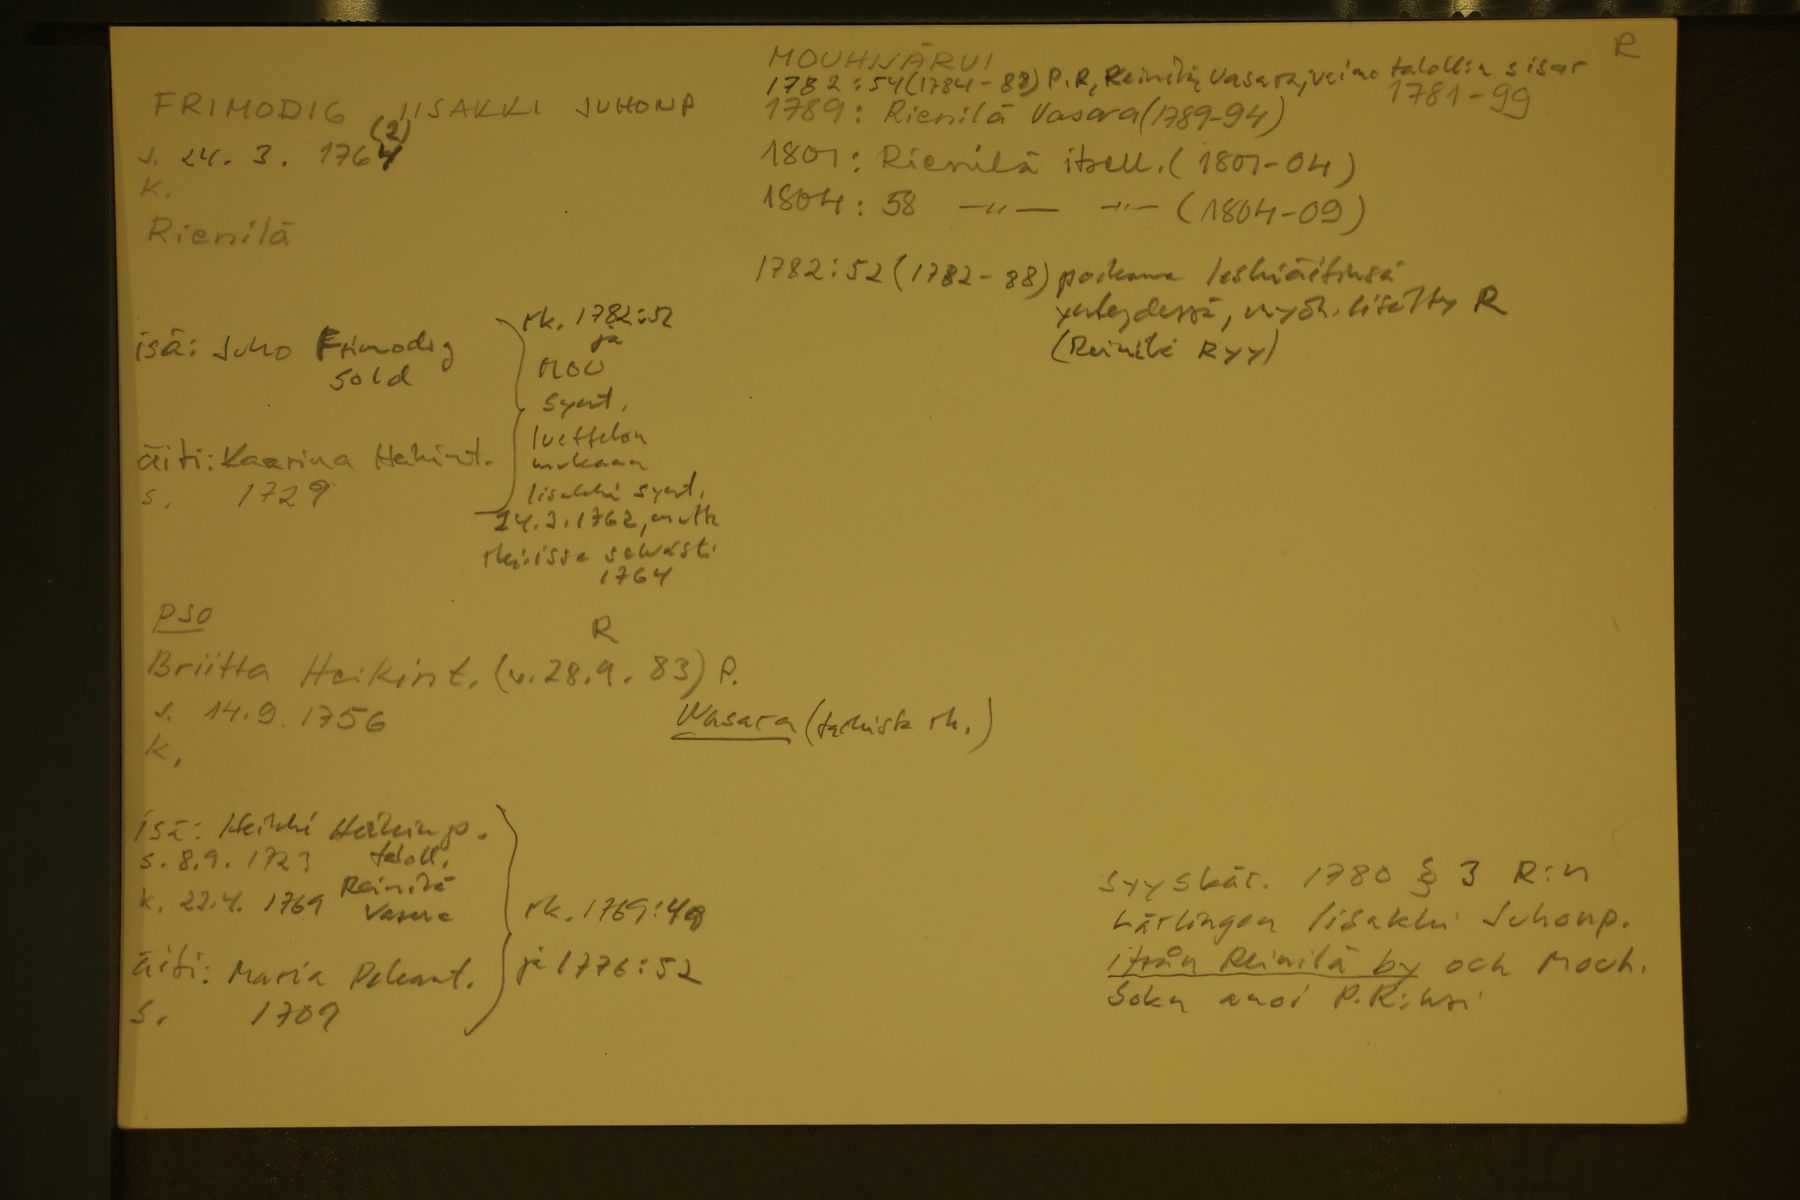 R
FRIMODIG IISAKKI JUHONP
s. 24. 3. 1764 (2)
K.
Rienilä
isä: Juho Frimodig
sold
äiti: Kaarina Heikint.
s. 1729
rk. 1782:52
ja
MOU
synt.
luettelon
mukaan
Iisakki synt.
24.3.1762, mutta
rk:issa selvästi
1764
PSO
R
Briitta Heikint. (v. 28.9. 83) P.
s. 14.9. 1756
Wasara (tarkista rk.)
K.
isä: Heikki Heikinp.
s. 8.9. 1723 taloll.
k. 22.4. 1769 Reinilä
Vasara
äiti: Maria Pekant.
s. 1709
rk. 1769:49
ja 1776:52
MOUHIJÄRVI
1782:54 (1784-88) P.R, Reinilä Vasara, vaimo talollin sisar
1781-99
1789: Rienilä Vasara (1789-94)
1801: Rienilä itsell. (1801-04)
1804: 58 —"— —"— (1804-09)
1782:52 (1782-88) poikana leskiäitinsä
yhteydessä, myöh. lisätty R
(Reinilä Ryy)
Syyskär. 1780 § 3 R:n
Lärlingen Iisakki Juhonp.
ifrån Reinilä by och Mouh.
Sokn anoi P.R:ksi